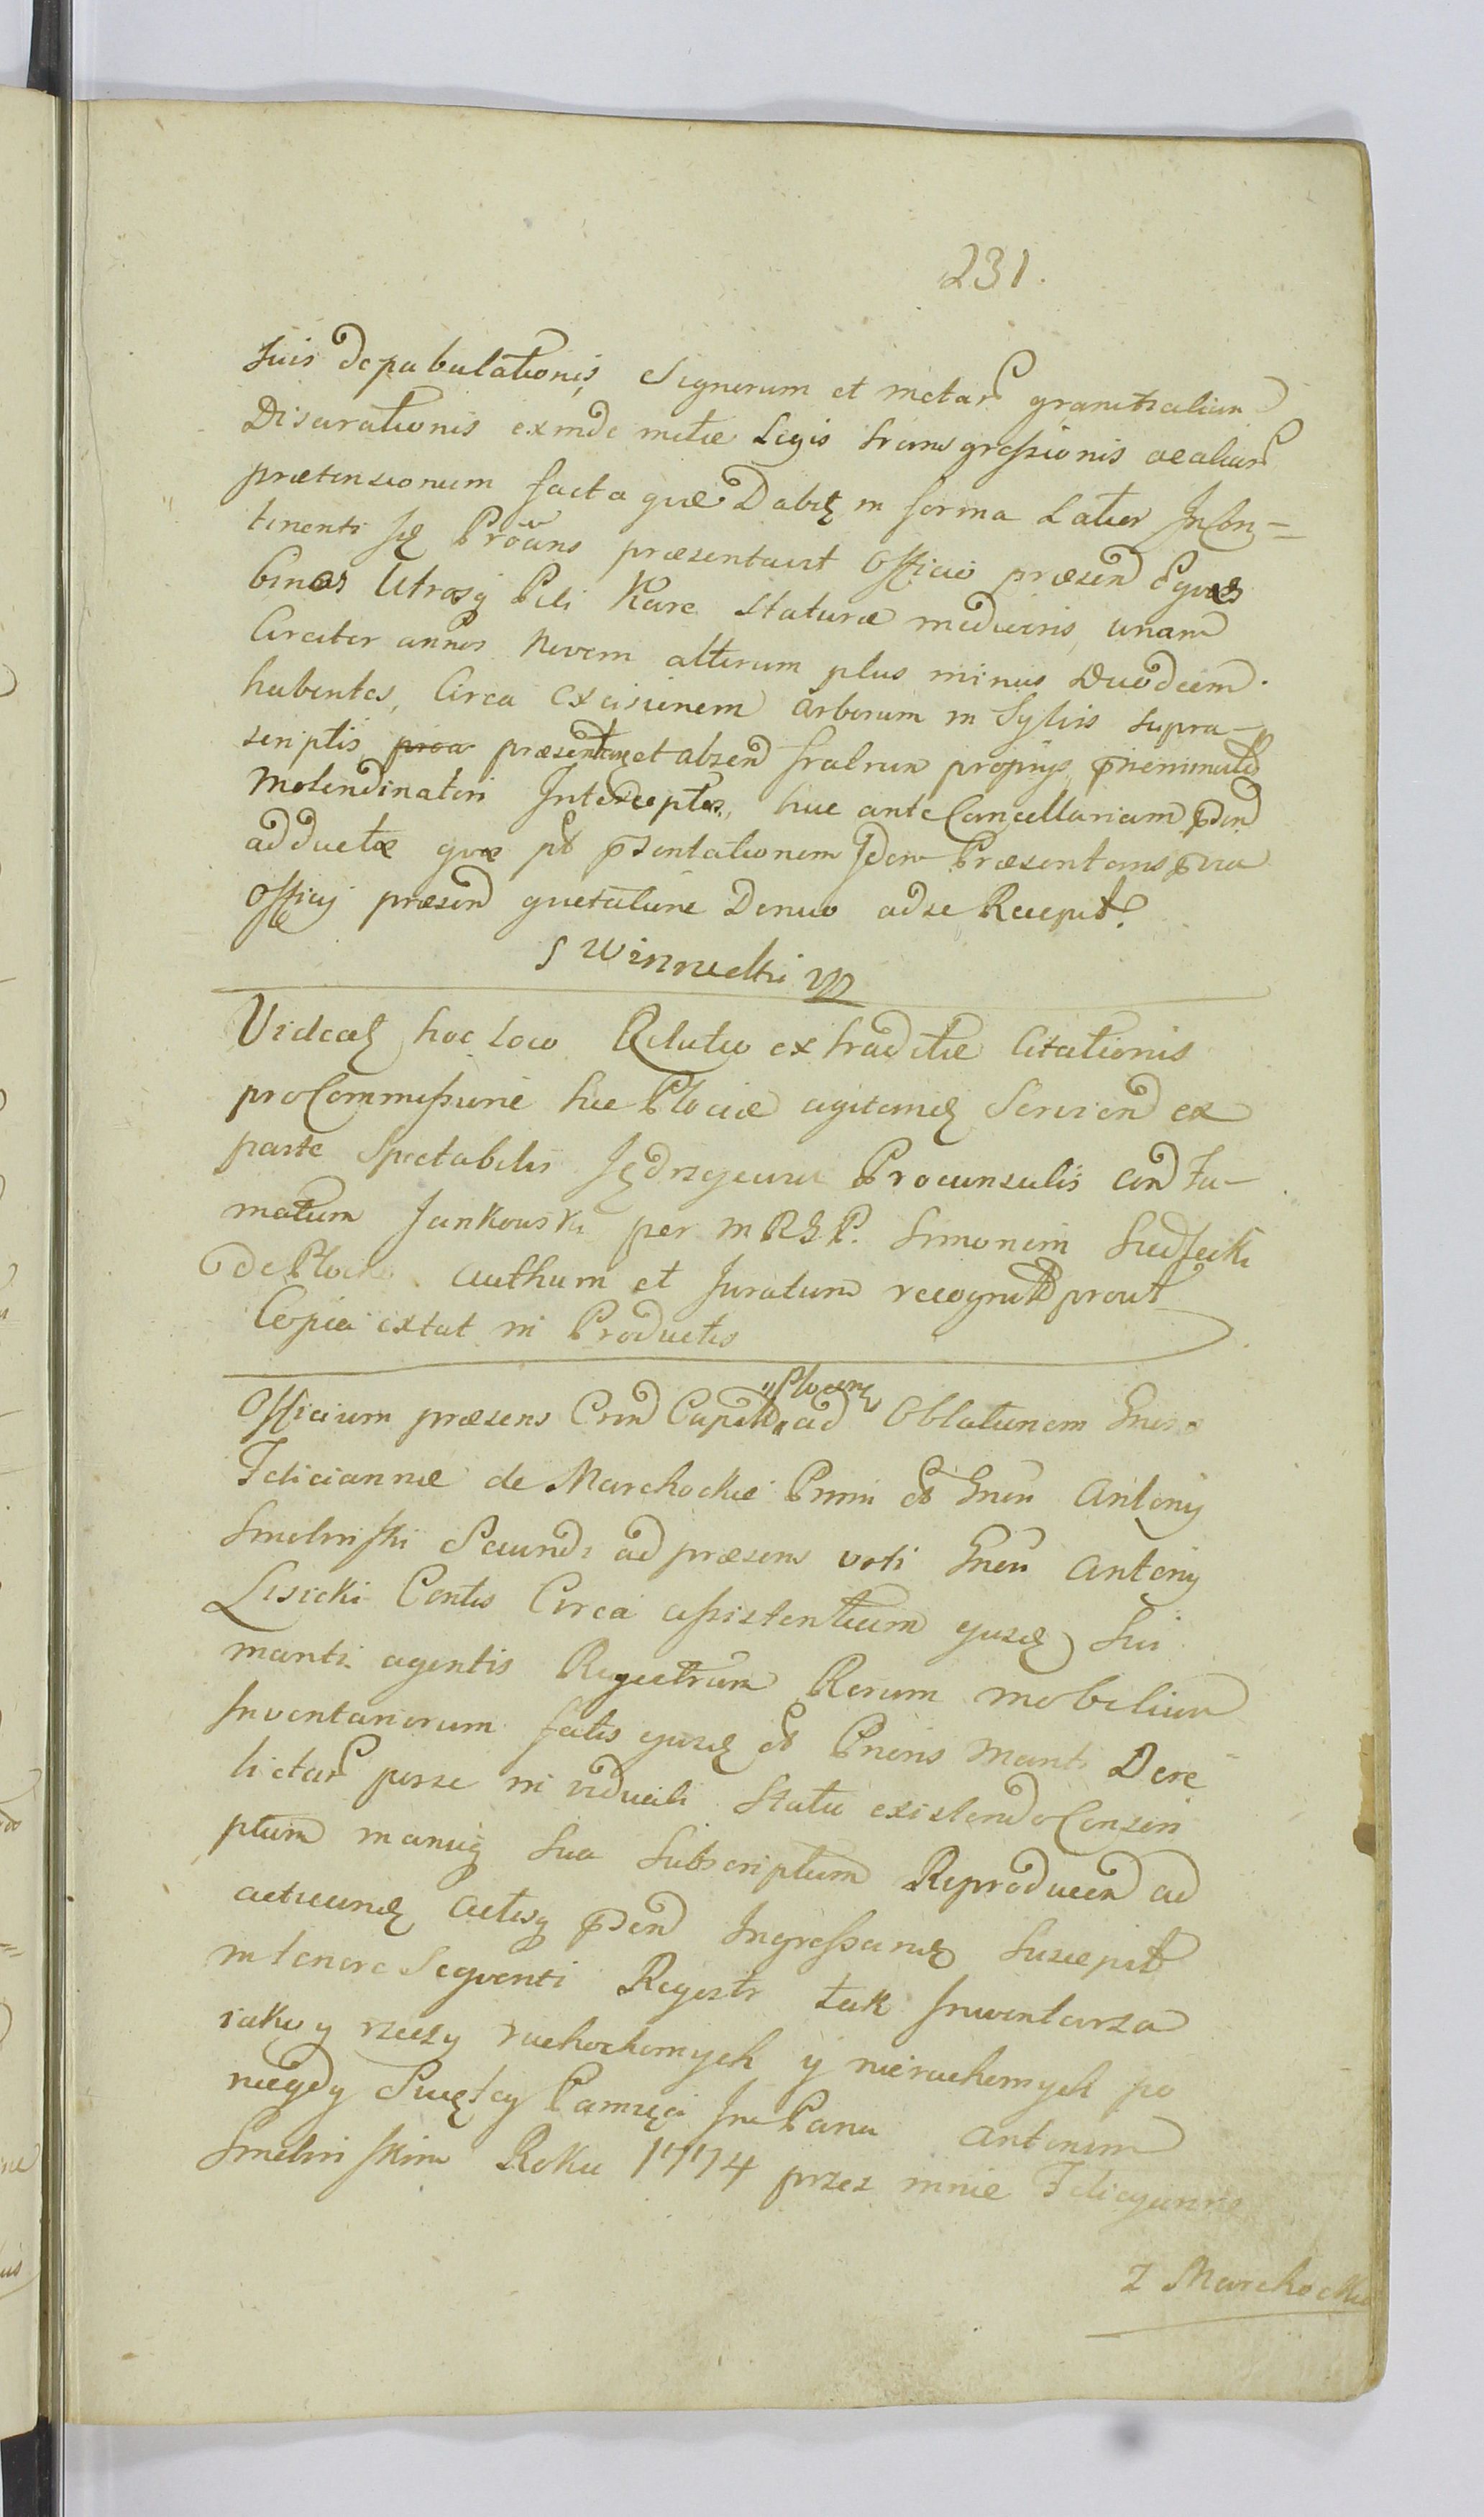 231.
suis depabulationis, Signorum et metar granitialium
Disarationis exinde mctæ Legis transgressionis aealiar
prætensionum facta quæ Dabit in forma Latior Incon=
tinenti præsentavit Officio præsen Equos
binos Utrosq Pili Kare staturæ mediocris, unam
Circiter annos Novem alterum plus minus Duodecim.
habentes, Circa Excisionem Arborum in Sylvis supra-
scriptis præsentan et absen fratrum propriis
Molendinatori Interceptos, huc ante Cancellariam psen
adductæ quæ pt psentationem Idem Præsentans
Officii præsen quietatione Denuo ad se Recepit.
S Winnicki mp
Videat hoc loco Relatio ex traditæ Citationis
pro Commissione hic Plociæ agitand Servien ex
parte Spectabilis Proconsulis con Fa-
matum Jankowski per m R G P. Simonem
de Plocko authum et Juratum recognit prout
Copia extat in Productis
Officium præsens Cron Capit "Plocen" ad Oblationem Gnerosæ
Feliciannæ de Marchockie Primi et Gnen Antonij
Smolinski Secundi ad præsens voti Gnen Antonij
Lisicki Contis Circa assistentiam ejusd sui
mariti agentis Regestrum Rerum mobilium
Inventariorum fatis ejusd et Prioris Mariti Dere
lictar per se in viduali Statu existendo Conscri
ptum manuq sua Subscriptum Reproducen ad
acticand actisq psen Ingrossand Suscepit
in tenore Sequenti Regestr tak Inwentarza
iako y rzeczy ruchochomych y nieruchomych po
niegdy Swiętey Pamięci Jm Panu Antonim
Smolinskim Roku 1774 przez mnie Felicyannę
z Marchockic